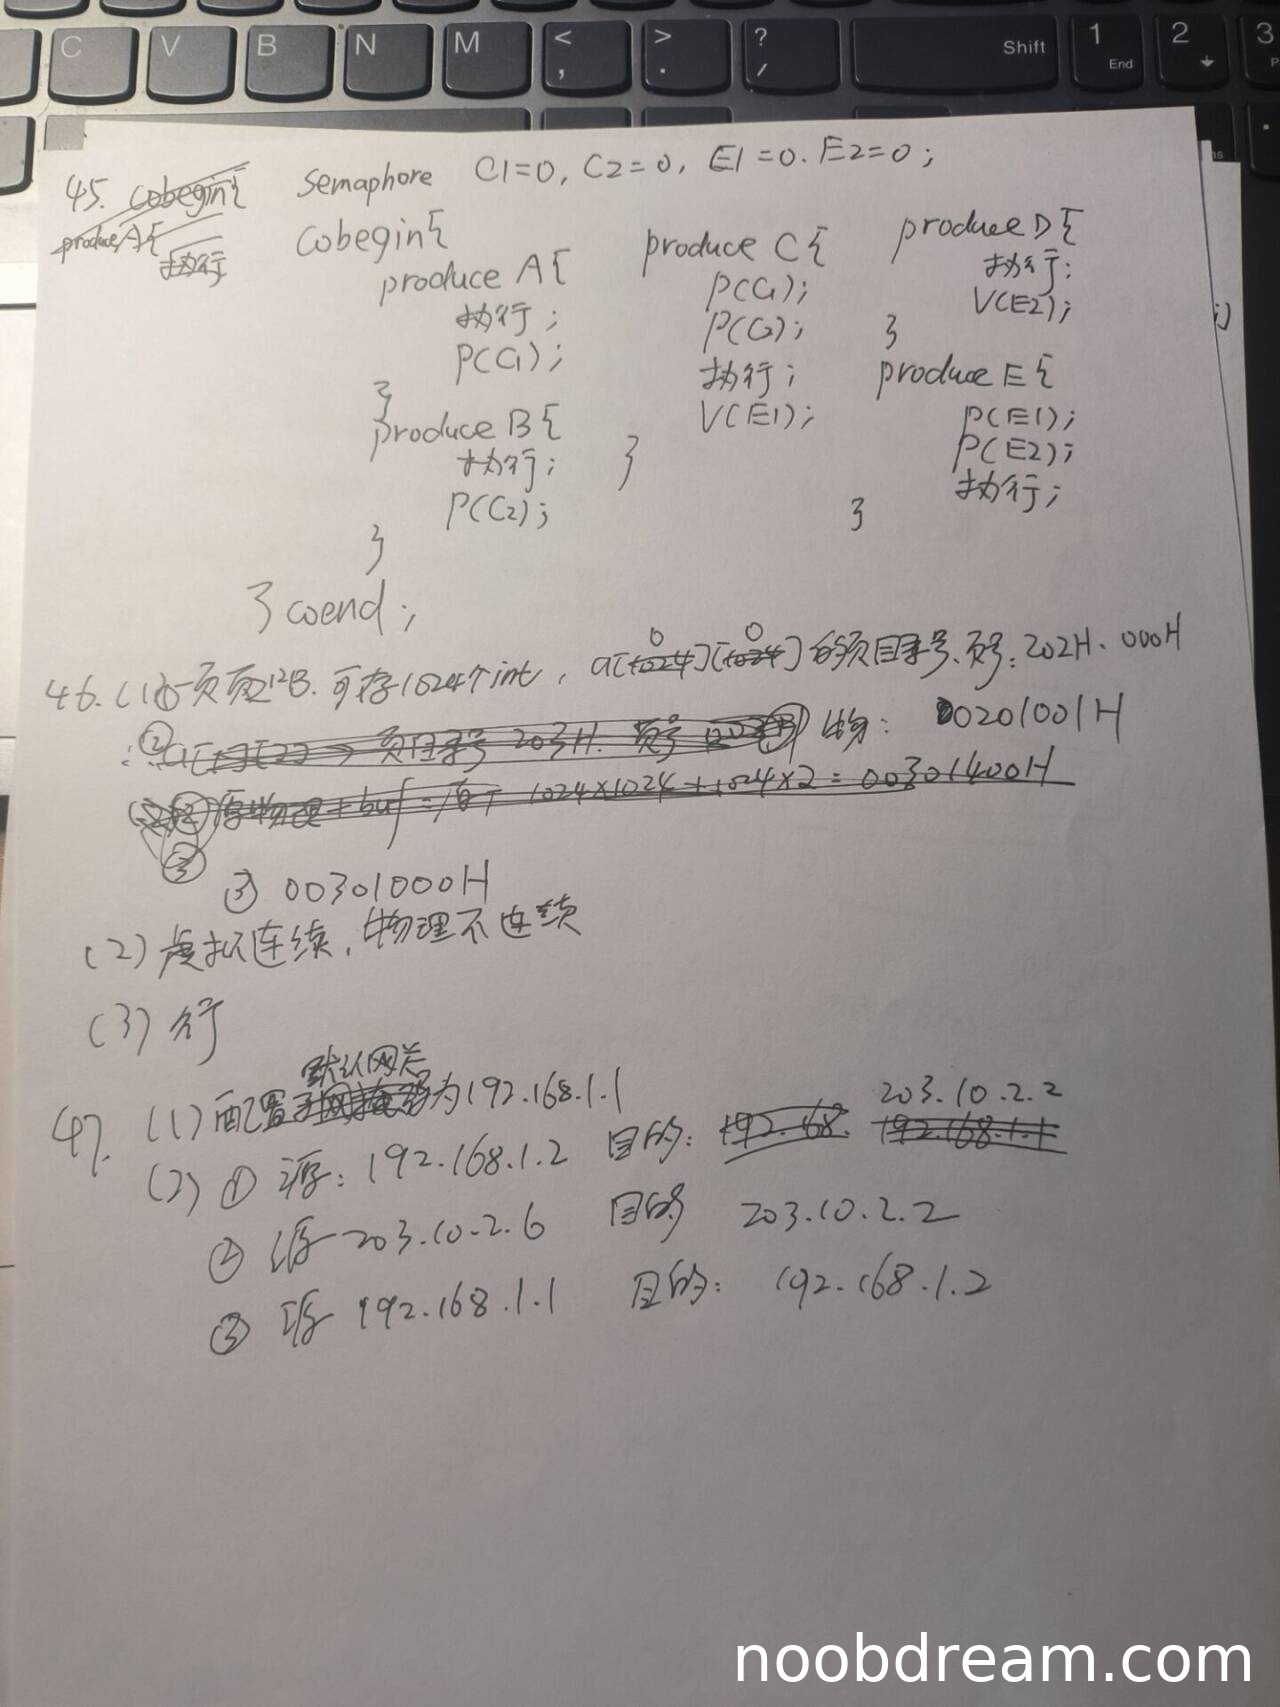 45. cobegin{ Semaphore C1=0, C2=0, E1=0. E2=0;
produce A{
执行
cobegin{
produce A{
执行;
P(C1);
}
produce B{
执行;
P(C2);
}
produce C{
P(C1);
P(C2);
执行;
V(E1);
}
produce D{
执行;
V(E2);
}
produce E{
P(E1);
P(E2);
执行;
}
} coend;
46. (1) ① 一页 2^12B. 可存1024个int, a[0][0]的页目录号、页号: 202H、000H
② 00201001H
1024×1024+1024×2=00301400H
③ 00301000H
(2) 虚拟连续, 物理不连续
(3) 行
47. (1) 配置默认网关为192.168.1.1
(2) ① 源: 192.168.1.2 目的: 203.10.2.2
② 源 203.10.2.6 目的 203.10.2.2
③ 源 192.168.1.1 目的: 192.168.1.2
C
V
B
N
M
<
,
>
.
?
/
Shift
1
End
2
3
noobdream.com